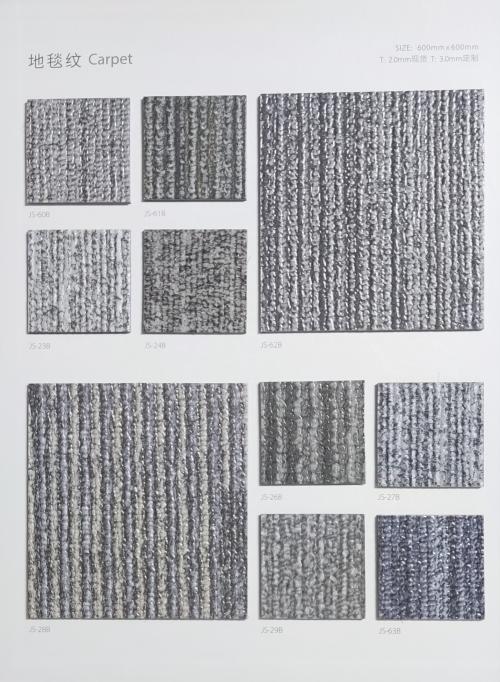 地毯纹 Carpet
SIZE: 600mm x 600mm
T: 2.0mm现货 T: 3.0mm定制
JS-60B
JS-61B
JS-23B
JS-24B
JS-62B
JS-26B
JS-27B
JS-28B
JS-29B
JS-63B